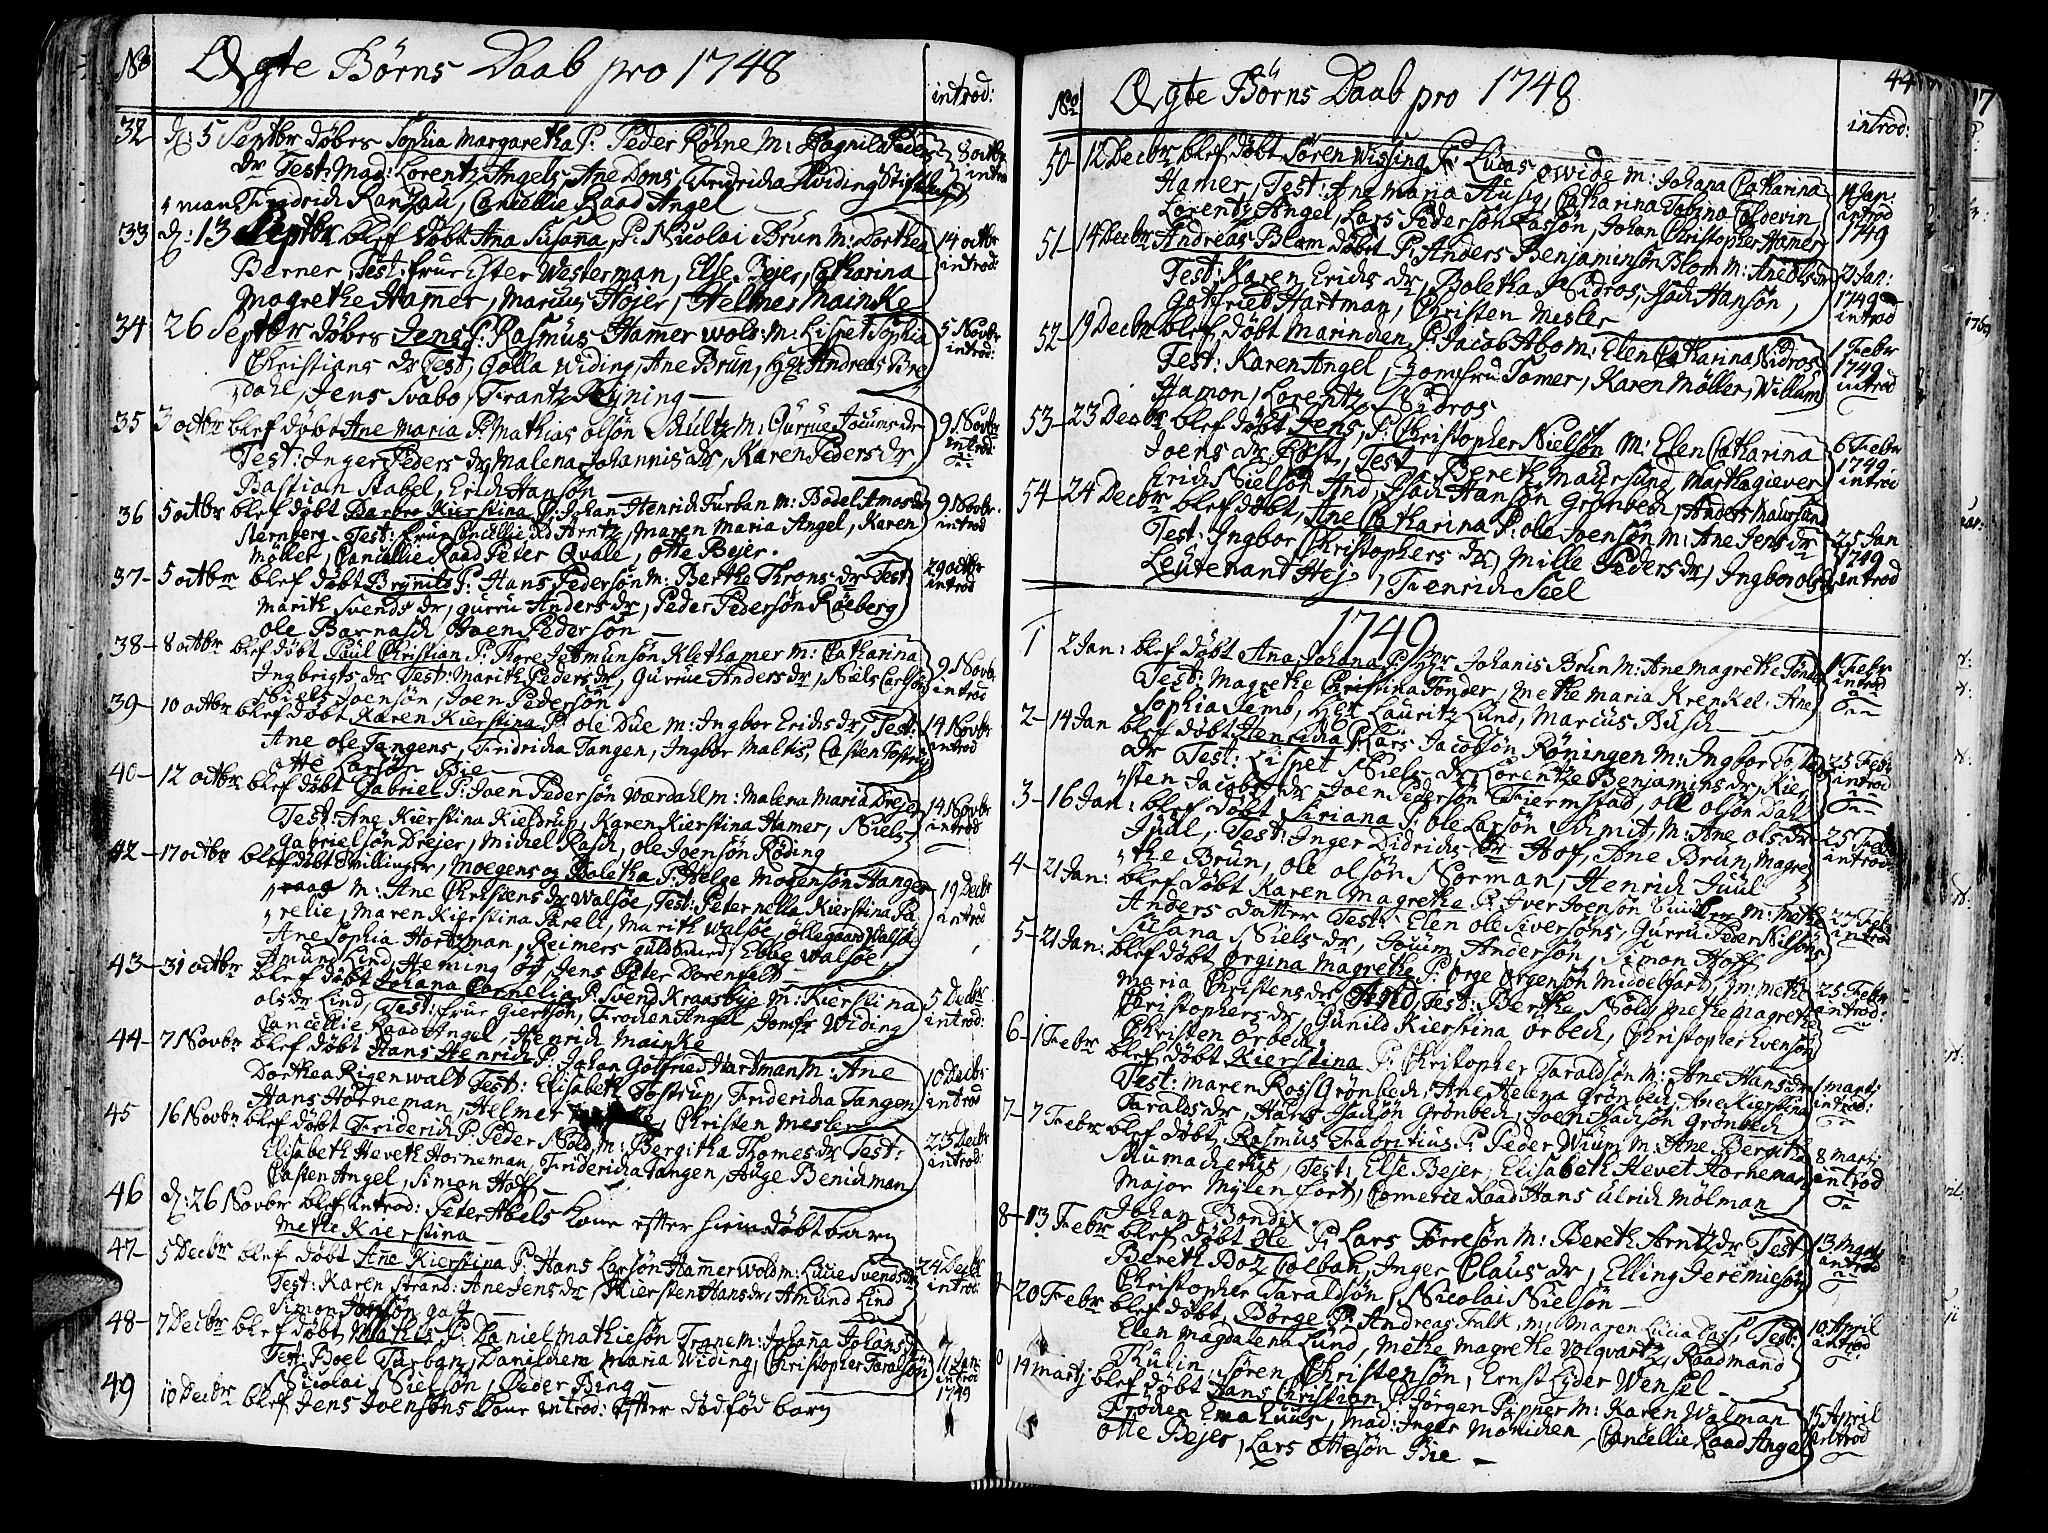 No Ægte Børns Daab pro 1748
introd:
32 d: 5 Septbr døbes Sophia Margaretha P. Peder Røhne M: Pagnild Peders
dr Test: Mad: Lorentz Angels, Ane Dons, Fridricha Hviding
Fridrich Ranzau, Cancellie Raad Angel
8 octbr introd
33 d: 13 Septbr blef døbt Ana Susana, P. Nicolai Brun M: Dorthea
Berner, Test: frue Ester Westerman, Else Bejer, Catharina
Magrethe Hamer, Marcus Højer, Helmer Mainke
14 octbr introd:
34 26 Septbr døbes Jens P. Rasmus Hamerwols: M: Lispet Sophia
Christians dr Test, Golla Widing, Ane Brun, Hgr Andreas Bre
dahl, Jens Svabo, Frantz Rejning
5 Novbr introd:
35 3 octbr blef døbt Ane Maria P. Mathias Olsøn Schultz M: Gurrue Jouns dr
Test: Inger Peders dr, Malena Johannis dr, Karen Peders dr
Bastian Stabel, Erich Hansøn
9 Novbr introd:
36 5 octbr blef døbt Barbro Kierstina P. Johan Henrich Turban M: Bodel Amos dr
Sternberg Test: frue Cancellie Rd Arntz, Maren Maria Angel, Karen
Møller, Cancellie Raad Peter Qvale, Otte Bejer.
9 Novbr introd
37 5 octbr blef døbt Brynild P. Hans Pedersøn M: Berthe Throns dr Test
Marith Svends dr, Gurru Anders dr, Peder Pedersøn Røeberg
Ole Barnasch, Joen Pedersøn
29 octbr introd
38 8 octbr blef døbt Paul Christian P. Thore Jetmunsøn Klethamer M: Catharina
Ingbrigts dr Test: Marith Peders dr, Gurrue Anders dr, Niels Carlsøn
Joensøn, Joen Pedersøn
9 Novbr introd
39 10 octbr blef døbt Karen Kierstina P. Ole Due M: Ingbor Erichs dr, Test:
Ane Ole Tangens, Fridricha Tangen, Ingbor Malks, Casten Tostrup
Otte Larsøn Bie
14 Novbr introd
40 12 octbr blef døbt Gabriel P. Joen Pedersøn Værdahl M: Malena Maria Drejer
Test: Ane Kierstina Kieldrup, Karen Kierstina Hamer, Niels
Gabrielsøn Drejer, Michel Rasch, Ole Joensøn Røding
14 Novbr introd
42 17 octbr blef døbt Tvillinger, Moegens og Boletha P. Helge Mogensøn Stanger
vaag M: Ane Christens dr Walsøe, Test: Peternella Kierstina Pa
relie, Maren Kierstina Parell, Marith Walsøe, Ollegaard Walsøe
Ane Sophia Hortzman, Reimers guldsmed, Ebbe Walsøe
Amund Lind, Heming og Jens Peter Dorenfelt
19 Decbr introd
43 31 octbr blef døbt Johana Cornelia P. Svend Kraasbye M: Kierstina
Ols dr Lind, Test: frue Giertsøn, Frøchen Angel, Jomfr Widing
Cancellie Raad Angel, Henrich Mainke
5 Decbr introd:
44 7 Novbr blef døbt Hans Henrich P. Johan Gotfried Hartman M: Ane
Dorthea Rigenwalt Test: Elisabeth Tostrup, Fridericha Tangen
Hans Horneman, Helmer , Christen Mesler
10 Decbr introd
45 16 Novbr blef døbt Friderich P. Peder Nold M: Bergitha Thomes dr Test:
Elisabeth Heveth Horneman, Fridericha Tangen, Auge Benichman
Casten Angel, Simon Hoff
23 Decbr introd:
46 d: 26 Novbr blef introd: Peter Abels kone efter hiemdøbt barn
Methe Kierstina
47 5 Decbr blef døbt Ane Kierstina P. Hans Larsøn Hamerwold M: Lucie Svends dr
Test: Karen Strand: Ane Jens dr, Kiersten Hans dr, Amund Lind
Simon Hansøn
24 Decbr introd:
48 7 Decbr blef døbt Mathis P: Daniel Mathiesøn Trane M: Johana Johans dr
Test: Boel Turban, Danichen Maria Widing, Christopher Taralsøn
Nicolai Nielsøn, Peder Bing
11 Jan: introd 1749
49 10 Decbr blef Jens Joensøns kone introd: efter dødfød barn
No Ægte Børns Daab pro 1748
44
introd:
50 12 Decbr blef døbt Søren Wissing P. Lucas Qwide M: Johana Catharina
Hamer, Test: Ane Maria Husig, Catharina Sabina Coloevin,
Lorentz Angel, Lars Pedersøn Lassøn, Johan Christopher Hamer
4 Jan: introd 1749
51 14 Decbr Andreas Blom døbt P. Anders Benjaminsøn Blom M: Ane Ols dr
Test: Karen Erichs dr, Boletha Nidros, Isach Hansøn,
Gotfrieb Hartman, Christen Mesler
2 Jan: 1749 introd
52 19 Decbr blef døbt Marinchen P. Jacob Abo M: Elen Catharina Nidros
Test: Karen Angel, Jomfru Tomer, Karen Møller, Willum
Hamon, Lorentz Nidros
1 Febr 1749 introd
53 23 Decbr blef døbt Jens, P. Christopher Nielsøn M: Elen Catharina
Joens dr Røst, Test, Bereth Maursund, Martha Giever
Erich Nielsøn And, Isach Hansøn Grønbech, Anders Maursund
6 Febr 1749 introd
54 24 Decbr blef døbt, Ane Catharina P. Ole Joensøn M: Ane Jens dr
Test: Ingbor Christophers dr, Mille Peders dr, Ingbor Ols dr
Leutenant Hej, Fenrich Seel
25 Jan 1749 introd
1749
1 2 Jan: blef døbt Ana Johana P. Hr Johanis Brun M: Ane Magrethe Tønder
Test: Magrethe Christina Tønder, Methe Maria Krenkel, Ane
Sophia Jemt, Hgr Lauritz Lund, Marcus Busch
1 Febr introd
2 14 Jan blef døbt Henricha P. Lars Jacobsøn Røningen M: Ingbor
dr Test: Lispet Niels dr, Lorentze Benjamins dr, Kier
sten Jacobs dr, Joen Pedersøn Fiermstad, Ole Olsøn Dahl
25 Febr introd
3 16 Jan: blef døbt Siriana P. Ole Larsøn Schmit, M: Ane Ols dr
Juul, Test: Inger Didrichs dr Hof, Ane Brun, Magre
the Brun, Ole Olsøn Norman, Henrich Juul
25 Febr introd:
4 21 Jan: blef døbt Karen Magrethe P. Iver Joensøn M: Methe
Anders datter Test: Elen Ole Siversøns, Gurru Peder Nilsøns
Susana Niels dr, Jouim Andersøn, Simon Hoff
27 Febr introd
5 21 Jan: blef døbt Ørgina Magrethe P: Ørge Ørgensøn Middelfart, M: Methe
Maria Christens dr And, Test: Berthe Nold, Methe Magrethe
Christophers dr, Gunild Kierstina Orbech, Christopher Evensøn
Christen Orbech
25 Febr introd:
6 1 Febr blef døbt Kierstina P: Christopher Taraldsøn M: Ane Hans dr
Test: Maren Ross Grønbech, Ane Helena Grønbech, Ane Kierstina
Taralds dr, Hans Isachsøn Grønbech, Joen Isachsøn Grønbech
1 martj introd:
7 7 Febr blef døbt, Rasmus Fabritius P. Peder Wium M: Ane Bergitha
Schumacherus, Test: Else Bejer, Elisabeth Hevet Horneman
Major Mylenfort, Comercie Raad Hans Ulrich Mølman
Johan Bondix
8 martj introd
8 13 Febr blef døbt Ole P. Lars Torresøn M: Bereth Arntz dr Test
Bereth Botz Colban, Inger Claus dr, Elling Jeremiesøn
Christopher Taraldsøn, Nicolai Nielsøn
13 Martj introd
20 Febr blef døbt, Børge P. Andreas Falk M: Maren Lucia Dass, Test:
Elen Magdalena Lund, Methe Magrethe Volqvartz, Raadmand
Thulin, Søren Christensøn, Ernst Eyder Wensel
10 April introd:
14 martj blef døbt Hans Christian P. Jørgen Pipper M: Karen Walman
Frøchen Ema Luus, Mad: Inger Monichen, Cancellie Raad Angel
Otte Bejer, Lars Ottesøn Bie
15 April introd